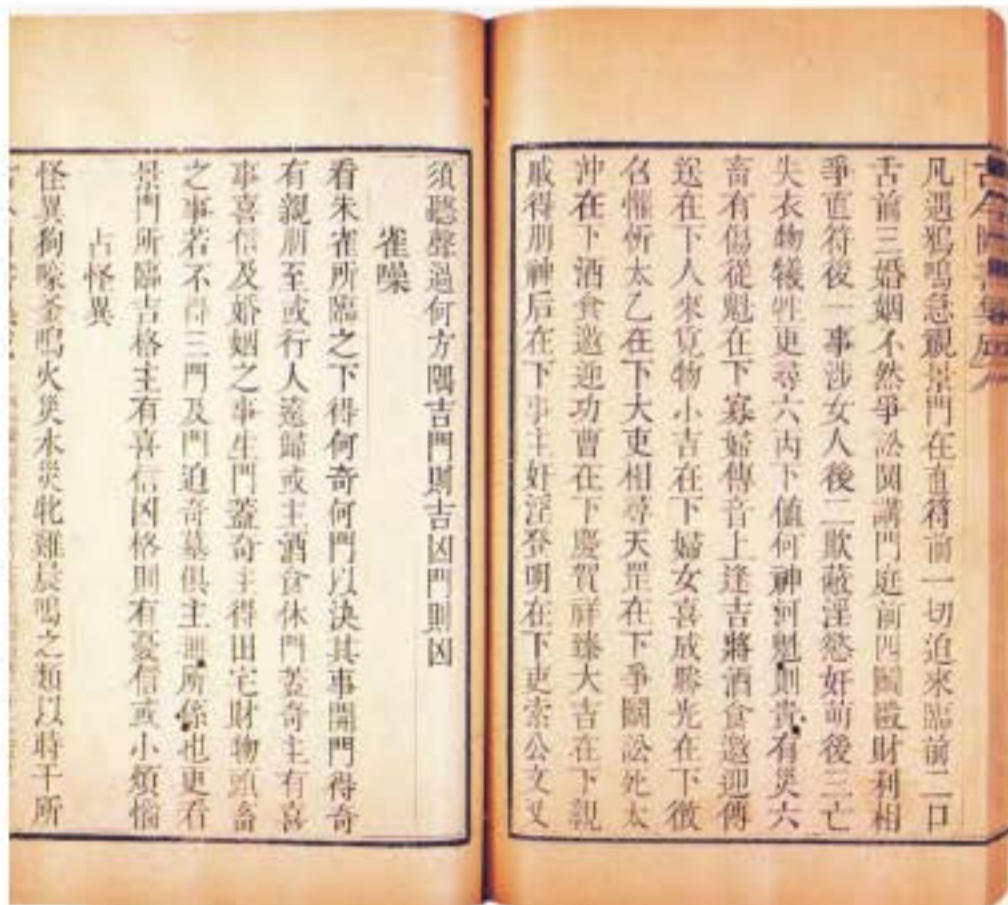 凡遇鴉鳴急覩景門在直符前一切迫來臨前二口
舌前三婚姻不然爭訟鬨講門庭前四鬭毆財利相
爭直符後一事涉女人後二欺蔽淫慾奸萌後三亡
失衣物犧牲更尋六丙下值何神河魁則貴有災六
畜有傷從魁在下寡婦傳音上逢吉將酒食邀迎傳
送在下人來覓物小吉在下婦女喜成勝光在下徵
召懽忻太乙在下大吏相尋天罡在下爭鬭訟死太
沖在下酒食邀迎功曹在下慶賀祥臻大吉在下親
戚得朋神后在下事主奸淫登明在下吏索公文又
須聽聲過何方隅吉門則吉凶門則凶
雀噪
看朱雀所臨之下得何奇何門以決其事開門得奇
有親朋至或行人遠歸或主酒食休門蓋奇主有喜
事喜信及婚姻之事生門蓋奇主得田宅財物頭畜
之事若不得三門及門迫奇墓俱主無所係也更看
景門所臨吉格主有喜信凶格則有憂信或小煩惱
占怪異
怪異狗嗥釜鳴火災水災牝雞晨鳴之類以時干所